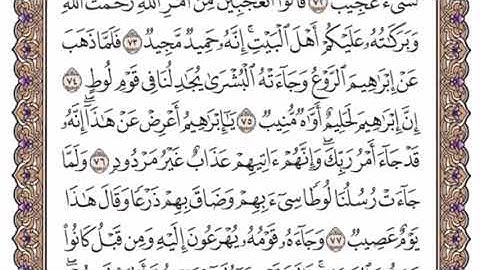 لَشَىْءٌ عَجِيبٌ ٧٢ قَالُوٓا۟ أَتَعْجَبِينَ مِنْ أَمْرِ ٱللَّهِ رَحْمَتُ ٱللَّهِ
وَبَرَكَٰتُهُۥ عَلَيْكُمْ أَهْلَ ٱلْبَيْتِ ۚ إِنَّهُۥ حَمِيدٌ مَّجِيدٌ ٧٣ فَلَمَّا ذَهَبَ
عَنْ إِبْرَٰهِيمَ ٱلرَّوْعُ وَجَآءَتْهُ ٱلْبُشْرَىٰ يُجَٰدِلُنَا فِى قَوْمِ لُوطٍ ٧٤
إِنَّ إِبْرَٰهِيمَ لَحَلِيمٌ أَوَّٰهٌ مُّنِيبٌ ٧٥ يَٰٓإِبْرَٰهِيمُ أَعْرِضْ عَنْ هَٰذَآ ۖ إِنَّهُۥ
قَدْ جَآءَ أَمْرُ رَبِّكَ ۖ وَإِنَّهُمْ ءَاتِيهِمْ عَذَابٌ غَيْرُ مَرْدُودٍ ٧٦ وَلَمَّا
جَآءَتْ رُسُلُنَا لُوطًا سِىٓءَ بِهِمْ وَضَاقَ بِهِمْ ذَرْعًا وَقَالَ هَٰذَا
يَوْمٌ عَصِيبٌ ٧٧ وَجَآءَهُۥ قَوْمُهُۥ يُهْرَعُونَ إِلَيْهِ وَمِن قَبْلُ كَانُوا۟